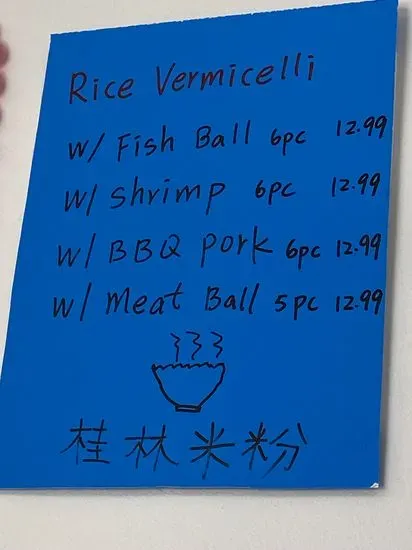 Rice Vermicelli
w/ Fish Ball 6pc 12.99
w/ shrimp 6pc 12.99
w/ BBQ pork 6pc 12.99
w/ meat Ball 5pc 12.99
桂林米粉